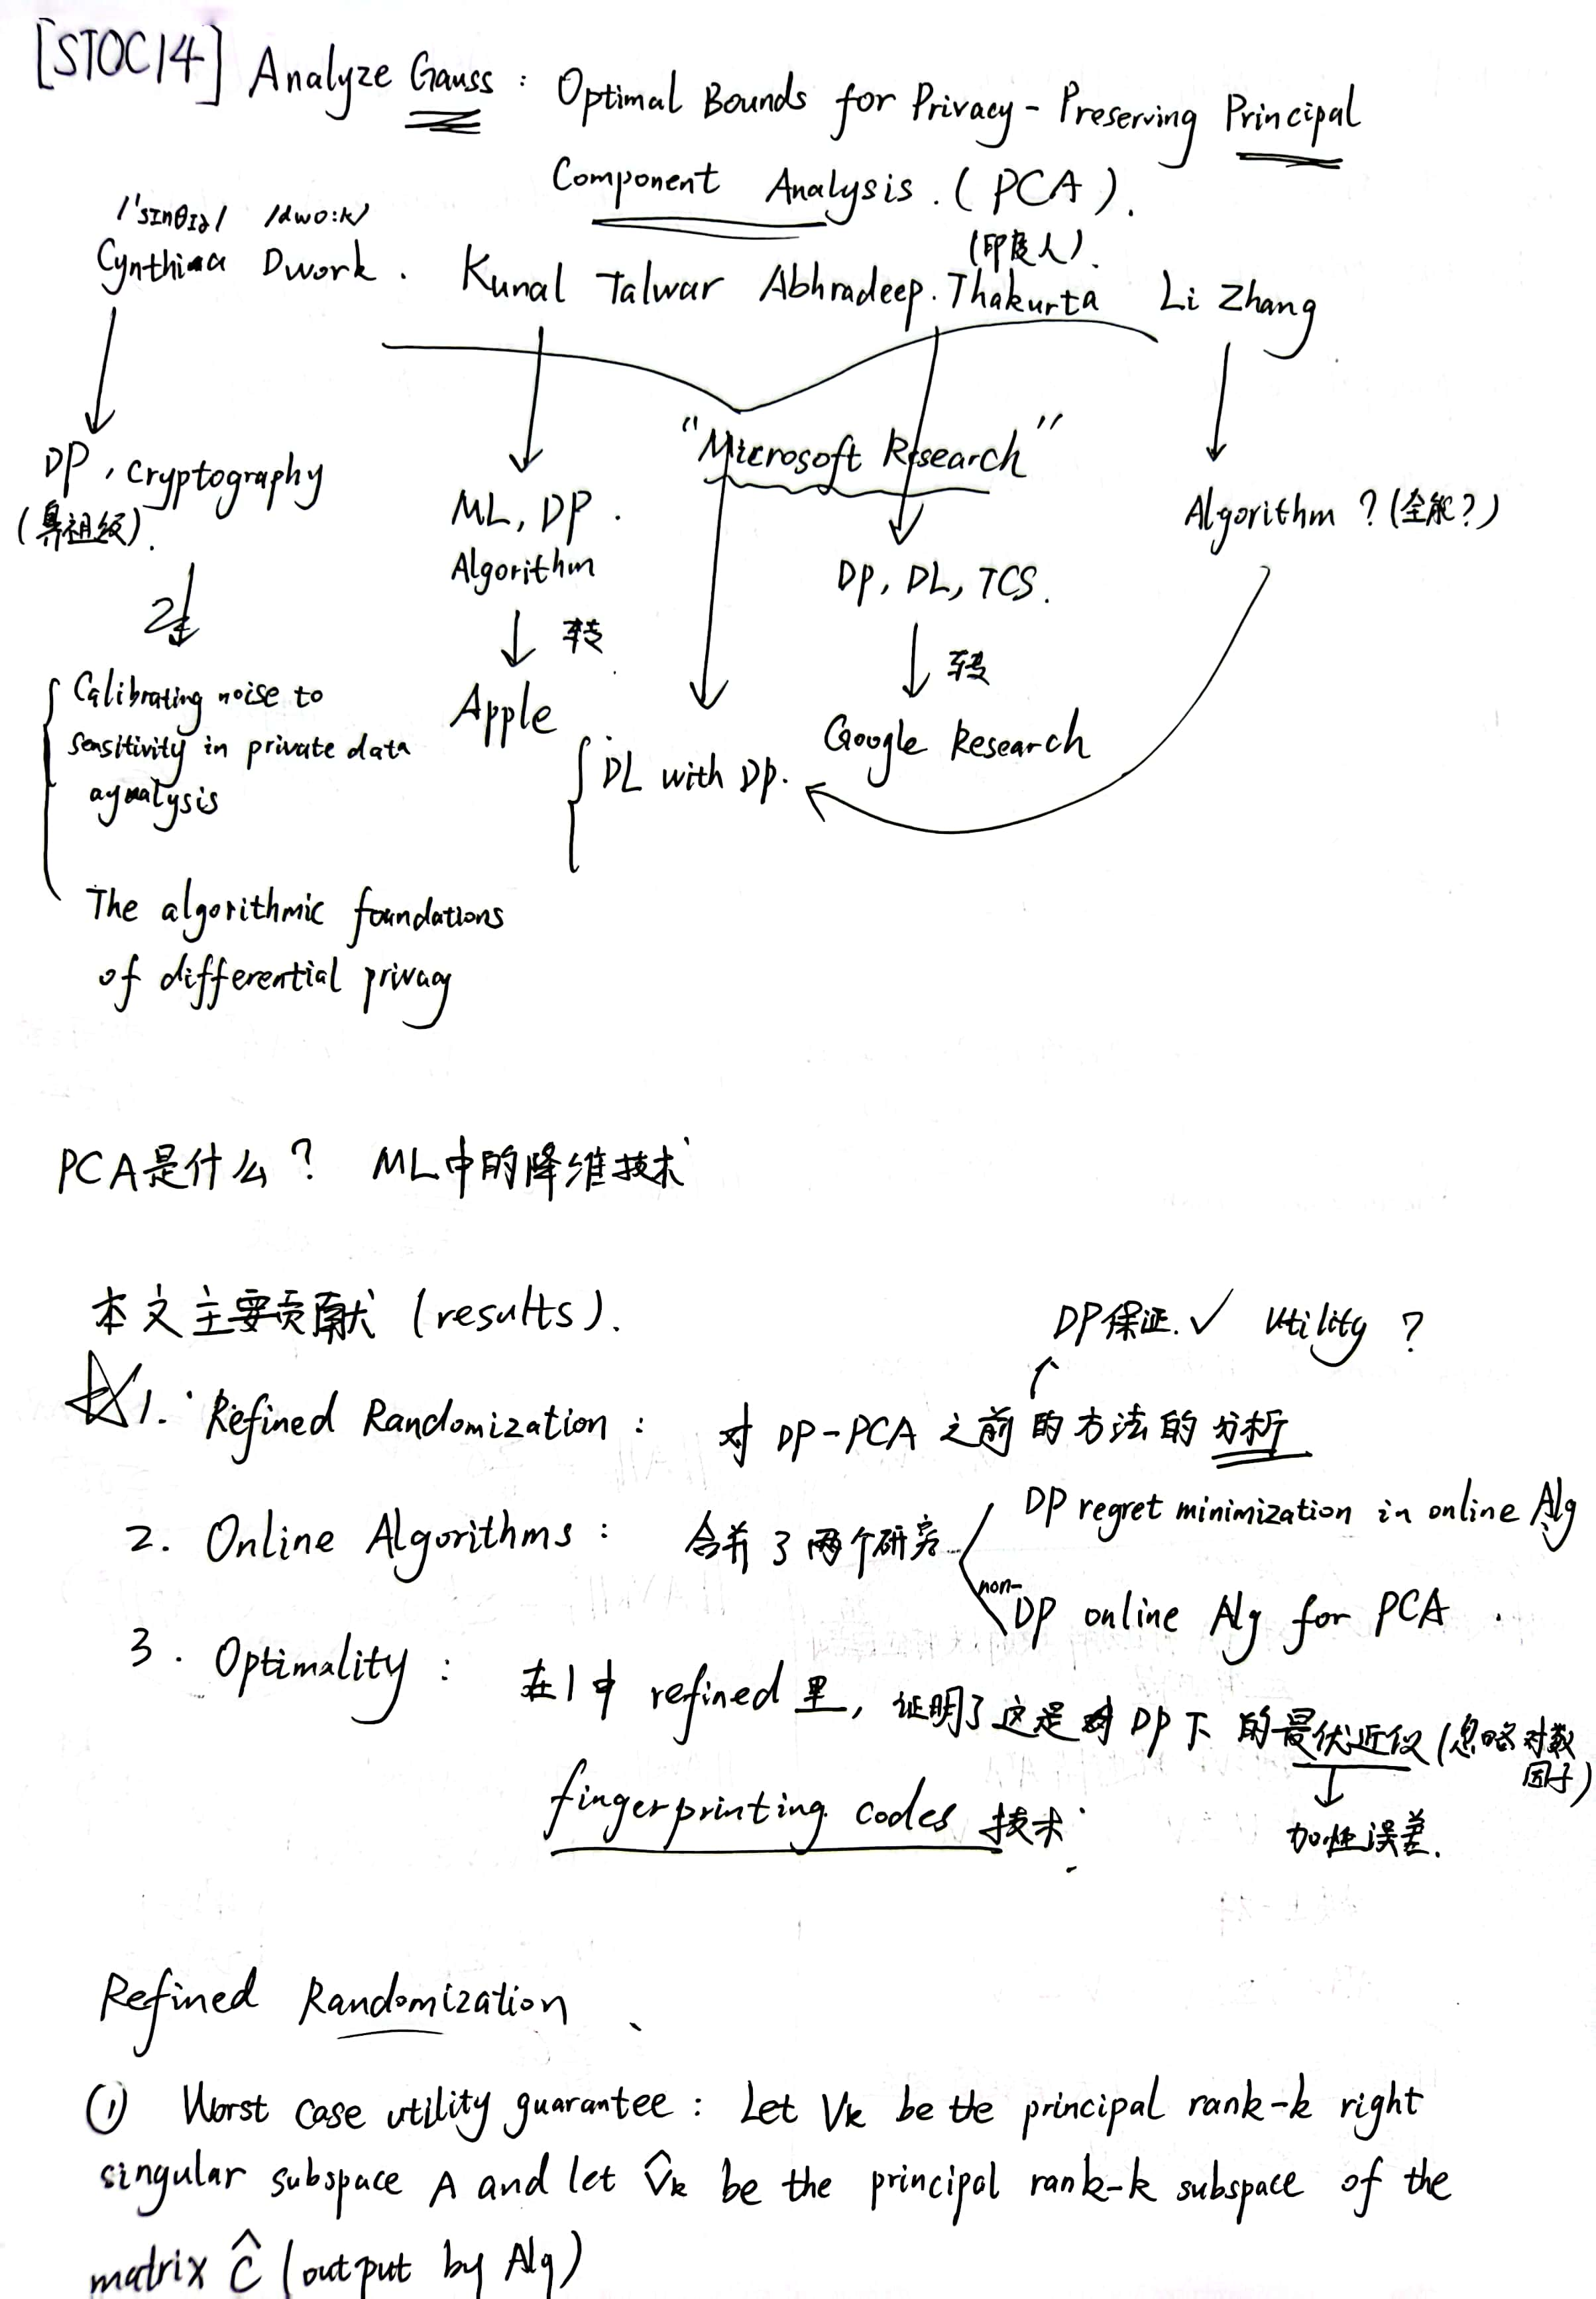 [STOC14] Analyze Gauss : Optimal Bounds for Privacy-Preserving Principal
Component Analysis. (PCA).
/'sɪnθɪə/ /dwɔ:k/
(印度人).
Cynthia Dwork. Kunal Talwar Abhradeep. Thakurta Li Zhang
"Microsoft Research"
DP, Cryptography
(鼻祖级).
ML, DP.
Algorithm
转
Apple
DP, DL, TCS.
转
Google Research
Algorithm ? (全能?)
Calibrating noise to
sensitivity in private data
aynalysis
The algorithmic foundations
of differential privacy
DL with DP.
PCA是什么? ML中的降维技术
本文主要贡献 (results).
DP保证.✓ Utility ?
☆1. Refined Randomization : 对 DP-PCA 之前的方法的分析
2. Online Algorithms : 合并了两个研究
DP regret minimization in online Alg
non-DP online Alg for PCA .
3. Optimality : 在1中 refined 里, 证明了这是 DP下的最优近似(忽略对数
因子)
加性误差.
fingerprinting codes 技术
Refined Randomization
① Worst case utility guarantee : Let Vk be the principal rank-k right
singular subspace A and let V̂k be the principal rank-k subspace of the
matrix Ĉ (output by Alg)